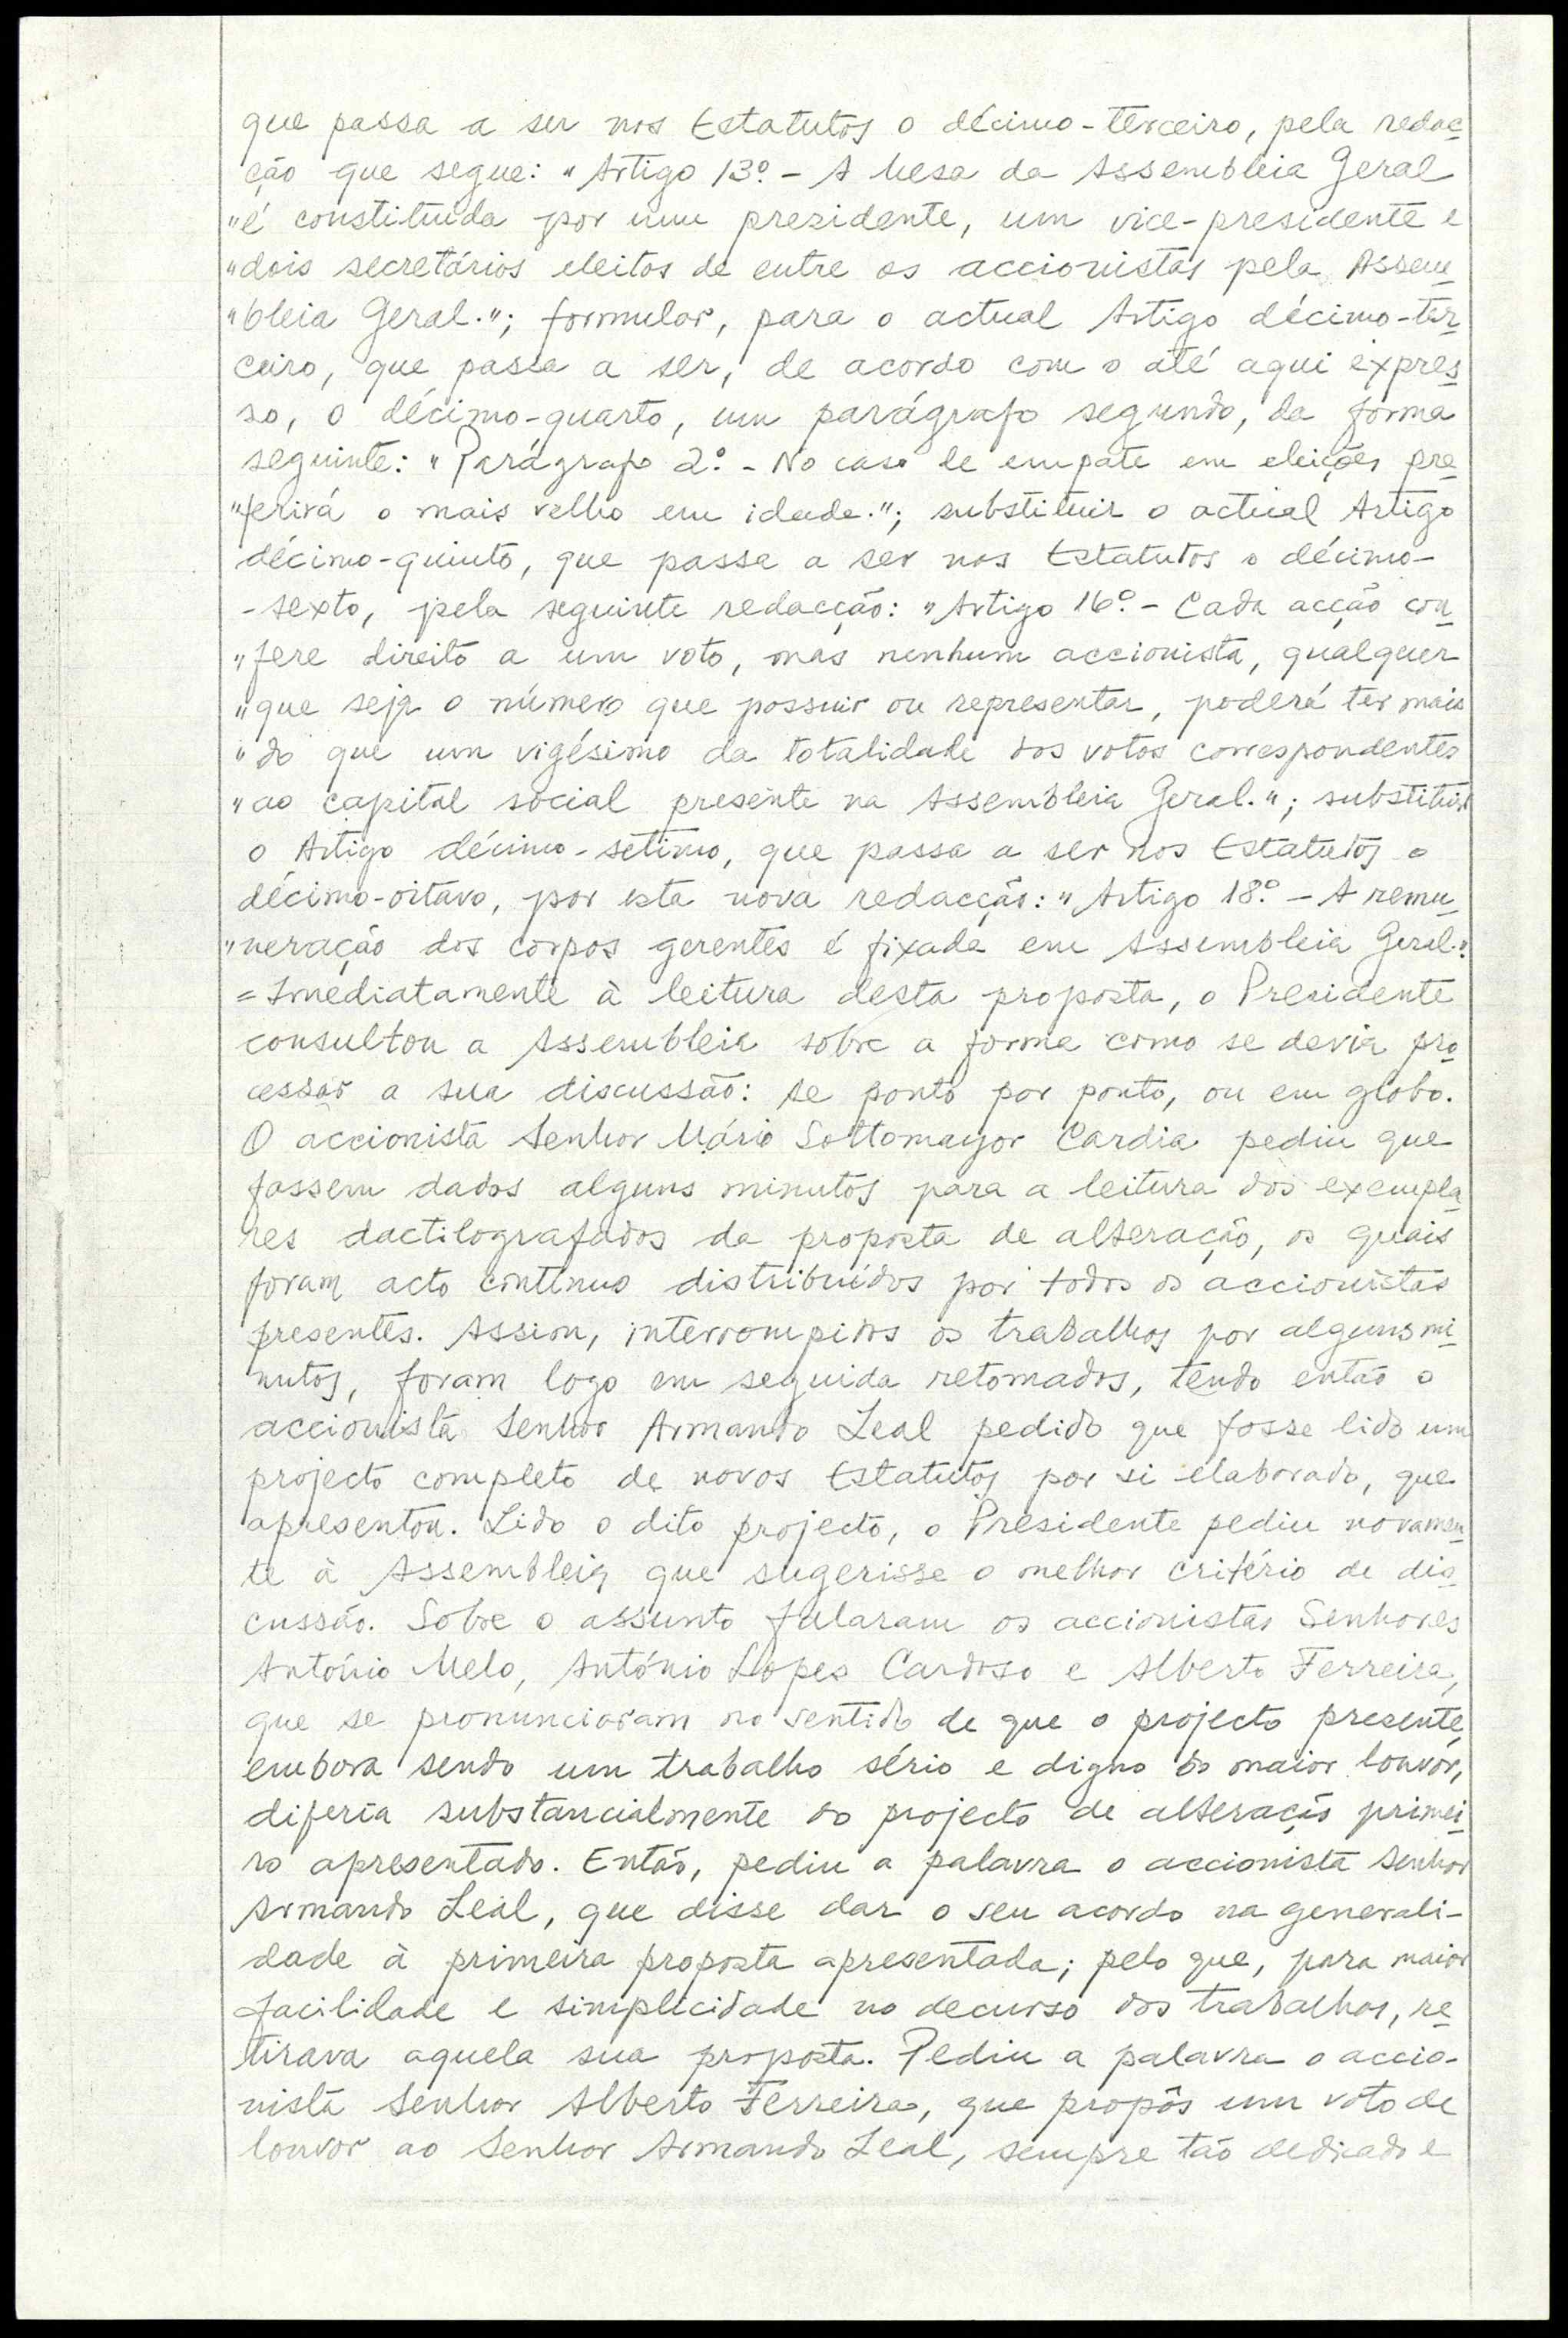 que passa a ser nos Estatutos o décimo-terceiro, pela redac
ção que segue: "Artigo 13º - A Mesa da Assembleia Geral
"é constituída por um presidente, um vice-presidente e
"dois secretários eleitos de entre os accionistas pela Assem
"bleia Geral."; formular, para o actual Artigo décimo-ter
ceiro, que passa a ser, de acordo com o até aqui expres
so, o décimo-quarto, um parágrafo segundo, da forma
seguinte: "Parágrafo 2º - No caso de empate em eleições pre
"ferirá o mais velho em idade."; substituir o actual Artigo
décimo-quinto, que passa a ser nos Estatutos o décimo-
-sexto, pela seguinte redacção: "Artigo 16º - Cada acção con
"fere direito a um voto, mas nenhum accionista, qualquer
"que seja o número que possuir ou representar, poderá ter mais
"do que um vigésimo da totalidade dos votos correspondentes
"ao capital social presente na Assembleia Geral."; substituir
o Artigo décimo-sétimo, que passa a ser nos Estatutos o
décimo-oitavo, por esta nova redacção: "Artigo 18º - A remu
"neração dos corpos gerentes é fixada em Assembleia Geral."
= Imediatamente à leitura desta proposta, o Presidente
consultou a Assembleia sobre a forma como se devia pro
cessar a sua discussão: se ponto por ponto, ou em globo.
O accionista Senhor Mário Sottomayor Cardia pediu que
fossem dados alguns minutos para a leitura dos exempla
res dactilografados da proposta de alteração, os quais
foram acto contínuo distribuídos por todos os accionistas
presentes. Assim, interrompidos os trabalhos por alguns mi
nutos, foram logo em seguida retomados, tendo então o
accionista Senhor Armando Leal pedido que fosse lido um
projecto completo de novos Estatutos por si elaborado, que
apresentou. Lido o dito projecto, o Presidente pediu novamen
te à Assembleia que sugerisse o melhor critério de dis
cussão. Sobre o assunto falaram os accionistas Senhores
António Melo, António Lopes Cardoso e Alberto Ferreira,
que se pronunciaram no sentido de que o projecto presente,
embora sendo um trabalho sério e digno do maior louvor,
diferia substancialmente do projecto de alteração primei
ro apresentado. Então, pediu a palavra o accionista Senhor
Armando Leal, que disse dar o seu acordo na generali-
dade à primeira proposta apresentada; pelo que, para maior
facilidade e simplicidade no decurso dos trabalhos, re
tirava aquela sua proposta. Pediu a palavra o accio-
nista Senhor Alberto Ferreira, que propôs um voto de
louvor ao Senhor Armando Leal, sempre tão dedicado e